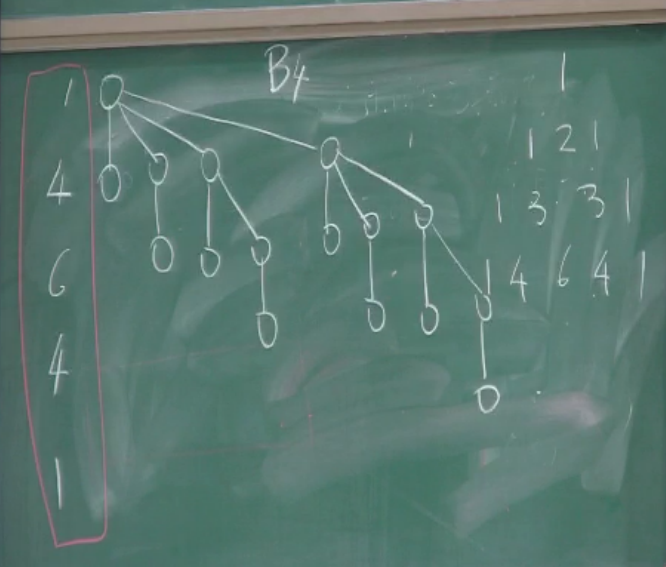 B4
1
4
6
4
1
1
1 2 1
1 3 3 1
1 4 6 4 1